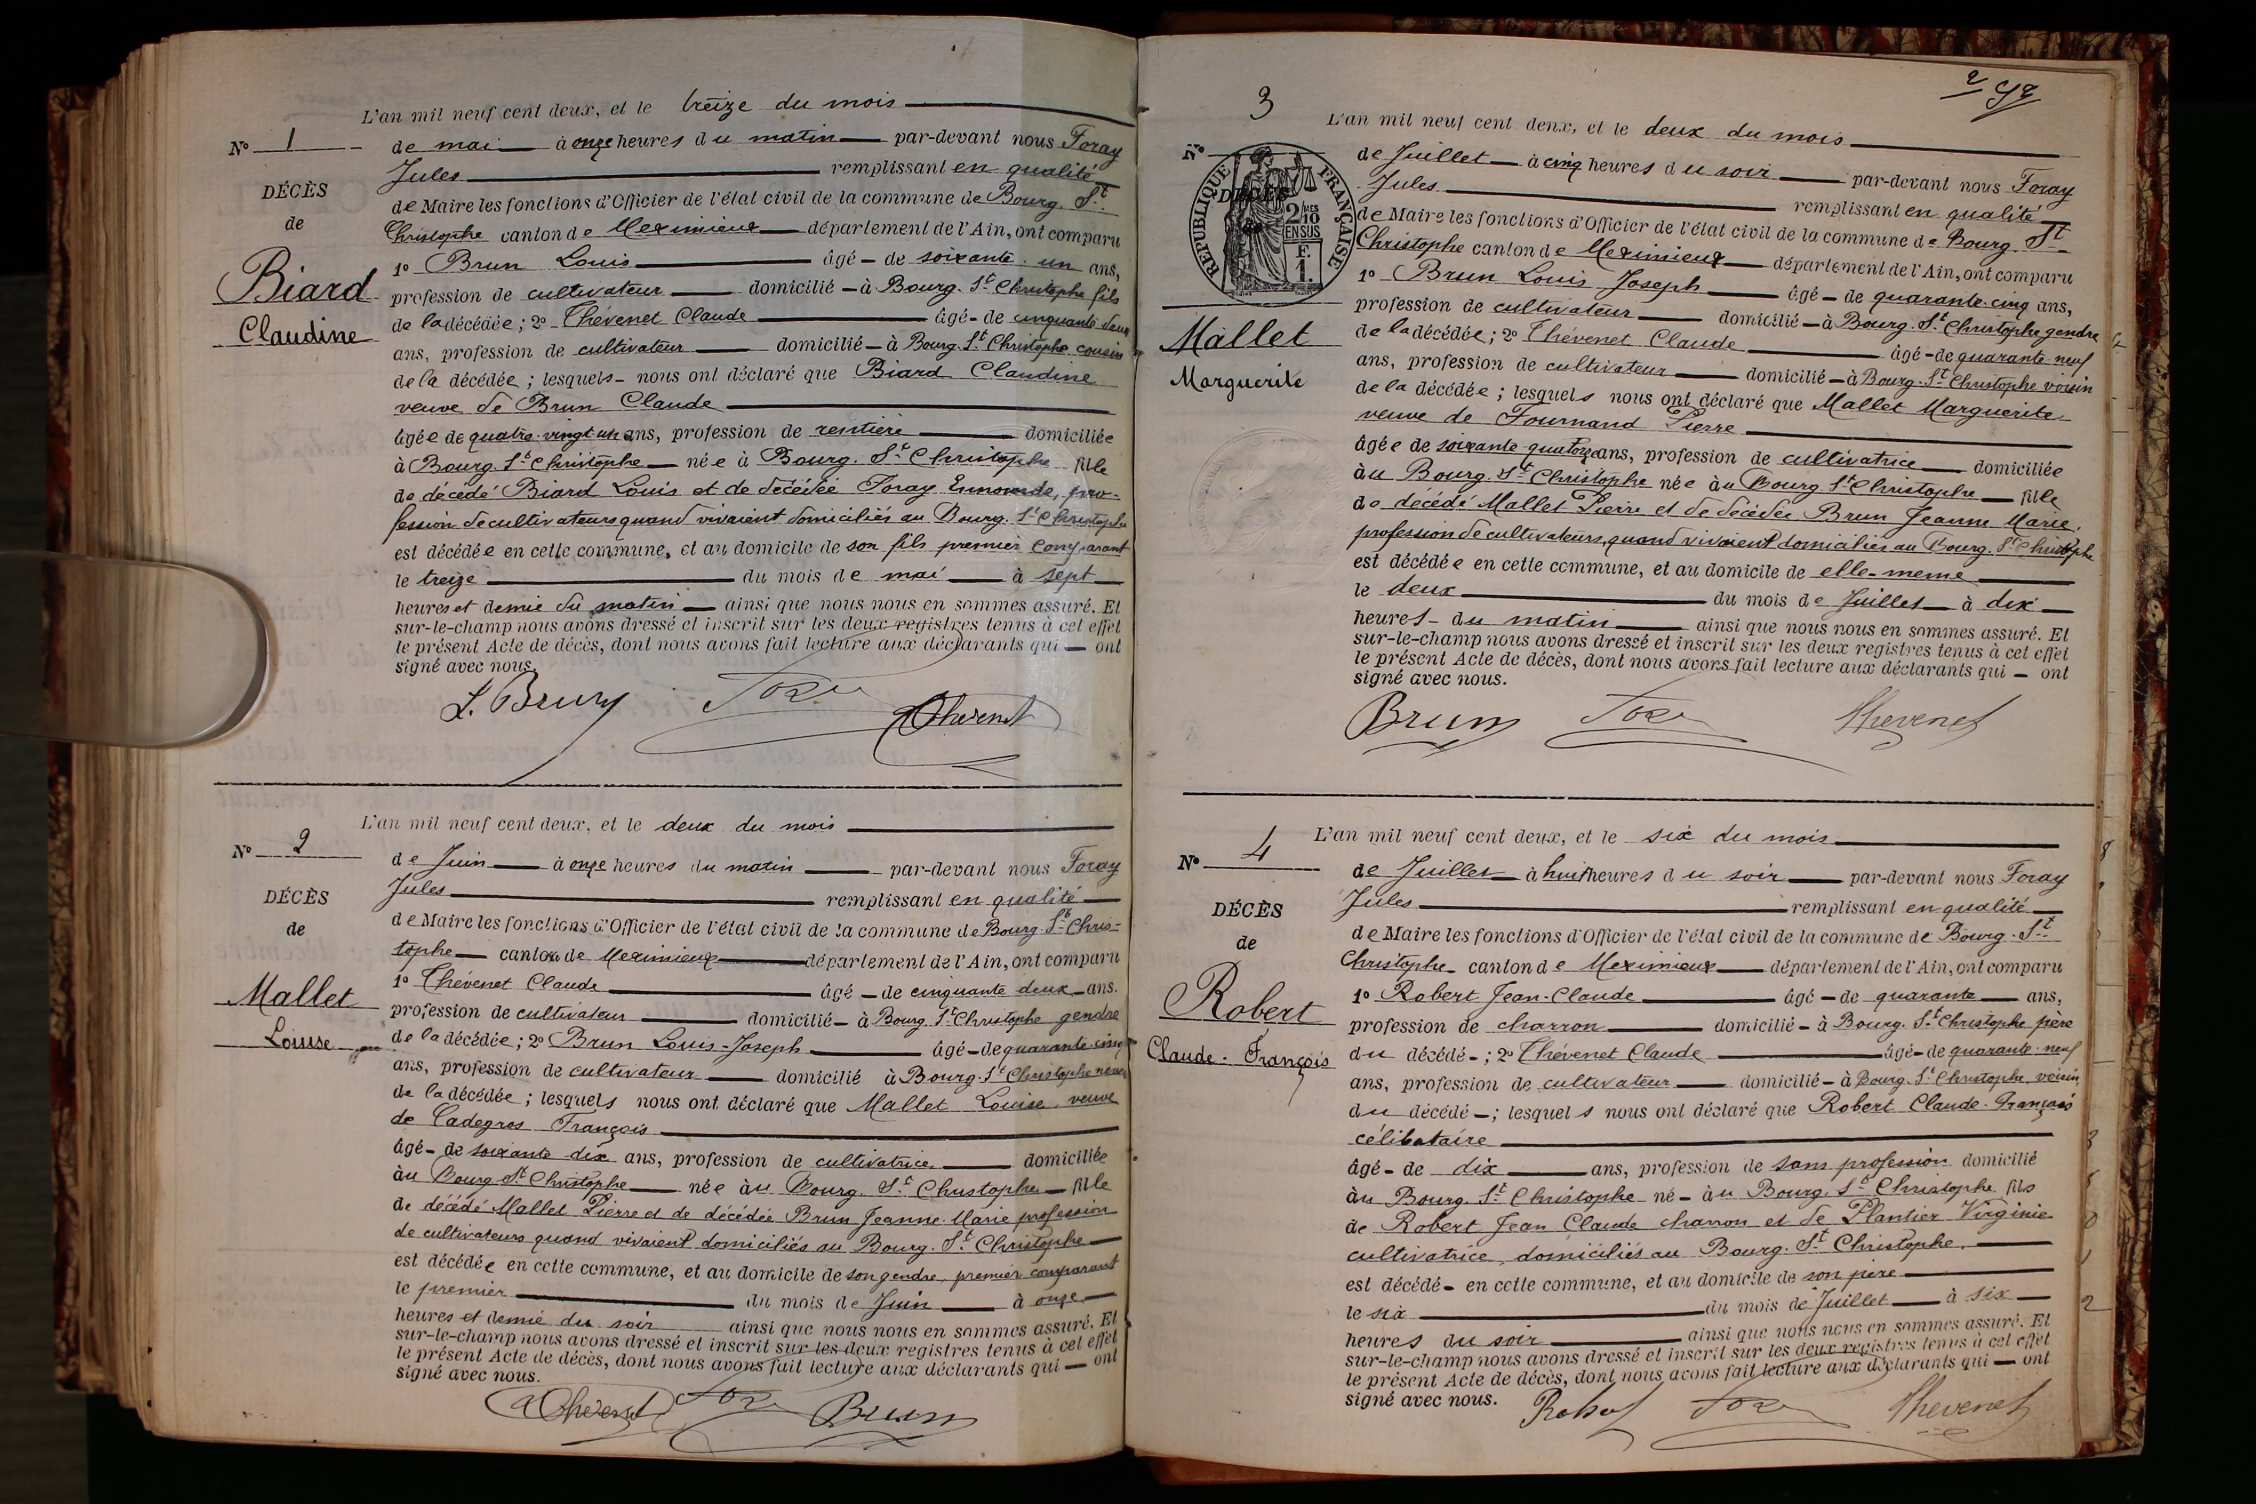 L'an mil neuf cent deux, et le treize du mois
N° 1
de mai à onze heures du matin par-devant nous Foray
Jules remplissant en qualité
DÉCÈS
de Maire les fonctions d'Officier de l'état civil de la commune de Bourg. St
de
Christophe canton de Meximieux département de l'Ain, ont comparu
Biard
1o Brun Louis âgé de soixante un ans,
profession de cultivateur domicilié à Bourg. St Christophe fils
Claudine
de la décédée; 2o Thévenet Claude âgé de cinquante deux
ans, profession de cultivateur domicilié à Bourg. St Christophe cousin
de la décédée; lesquels nous ont déclaré que Biard Claudine
veuve de Brun Claude
âgée de quatre-vingt un ans, profession de rentière domiciliée
à Bourg. St Christophe née à Bourg. St Christophe fille
de décédé Biard Louis et de décédée Foray pro-
fession de cultivateurs quand vivaient domiciliés au Bourg. St Christophe
est décédée en cette commune, et au domicile de son fils premier comparant
le treize du mois de mai à sept
heures et demie du matin ainsi que nous nous en sommes assuré. Et
sur-le-champ nous avons dressé et inscrit sur les deux registres tenus à cet effet
le présent Acte de décès, dont nous avons fait lecture aux déclarants qui ont
signé avec nous.
L. Brun Foray Thevenet
L'an mil neuf cent deux, et le deux du mois
N° 2
de Juin à onze heures du matin par-devant nous Foray
Jules remplissant en qualité
DÉCÈS
de Maire les fonctions d'Officier de l'état civil de la commune de Bourg. St Chris-
de
tophe canton de Meximieux département de l'Ain, ont comparu
Mallet
1o Thévenet Claude âgé de cinquante deux ans.
profession de cultivateur domicilié à Bourg. St Christophe gendre
Louise
de la décédée; 2o Brun Louis-Joseph âgé de quarante-cinq
ans, profession de cultivateur domicilié à Bourg. St Christophe neveu
de la décédée; lesquels nous ont déclaré que Mallet Louise veuve
de Cadegros François
âgé de soixante dix ans, profession de cultivatrice domiciliée
àu Bourg St Christophe née àu Bourg. St Christophe fille
de décédé Mallet Pierre et de décédée Brun Jeanne Marie profession
de cultivateurs quand vivaient domiciliés au Bourg. St Christophe
est décédée en cette commune, et au domicile de son gendre, premier comparant
le premier du mois de Juin à onze
heures et demie du soir ainsi que nous nous en sommes assuré. Et
sur-le-champ nous avons dressé et inscrit sur les deux registres tenus à cet effet
le présent Acte de décès, dont nous avons fait lecture aux déclarants qui ont
signé avec nous.
Thevenet Foray Brun
3
L'an mil neuf cent deux, et le deux du mois
N°
de Juillet à cinq heures du soir par-devant nous Foray
Jules remplissant en qualité
DÉCÈS
RÉPUBLIQUE FRANÇAISE
2/10 MES
EN SUS
F.
1.
de Maire les fonctions d'Officier de l'état civil de la commune de Bourg. St
Christophe canton de Meximieux département de l'Ain, ont comparu
1o Brun Louis Joseph âgé de quarante-cinq ans,
profession de cultivateur domicilié à Bourg. St Christophe gendre
Mallet
de la décédée; 2o Thévenet Claude âgé de quarante-neuf
Marguerite
ans, profession de cultivateur domicilié à Bourg. St Christophe voisin
de la décédée; lesquels nous ont déclaré que Mallet Marguerite
veuve de Fournand Pierre
âgée de soixante-quatorze ans, profession de cultivatrice domiciliée
àu Bourg. St Christophe née àu Bourg St Christophe fille
de décédé Mallet Pierre et de décédée Brun Jeanne Marie,
profession de cultivateurs, quand vivaient domiciliés au Bourg. St Christophe
est décédée en cette commune, et au domicile de elle-meme
le deux du mois de Juillet à dix
heures du matin ainsi que nous nous en sommes assuré. Et
sur-le-champ nous avons dressé et inscrit sur les deux registres tenus à cet effet
le présent Acte de décès, dont nous avons fait lecture aux déclarants qui ont
signé avec nous.
Brun Foray Thevenet
L'an mil neuf cent deux, et le six du mois
N° 4
de Juillet à huit heures du soir par-devant nous Foray
Jules remplissant en qualité
DÉCÈS
de Maire les fonctions d'Officier de l'état civil de la commune de Bourg. St
de
Christophe canton de Meximieux département de l'Ain, ont comparu
Robert
1o Robert Jean-Claude âgé de quarante ans,
profession de charron domicilié à Bourg. St Christophe père
Claude-François
du décédé; 2o Thévenet Claude âgé de quarante-neuf
ans, profession de cultivateur domicilié à Bourg. St Christophe, voisin
du décédé; lesquels nous ont déclaré que Robert Claude-François
célibataire
âgé de dix ans, profession de sans profession domicilié
àu Bourg. St Christophe né àu Bourg. St Christophe fils
de Robert Jean Claude charron et de Plantier Virginie
cultivatrice, domiciliés au Bourg. St Christophe.
est décédé en cette commune, et au domicile de son père
le six du mois de Juillet à six
heures du soir ainsi que nous nous en sommes assuré. Et
sur-le-champ nous avons dressé et inscrit sur les deux registres tenus à cet effet
le présent Acte de décès, dont nous avons fait lecture aux déclarants qui ont
signé avec nous.
Robert Foray Thevenet